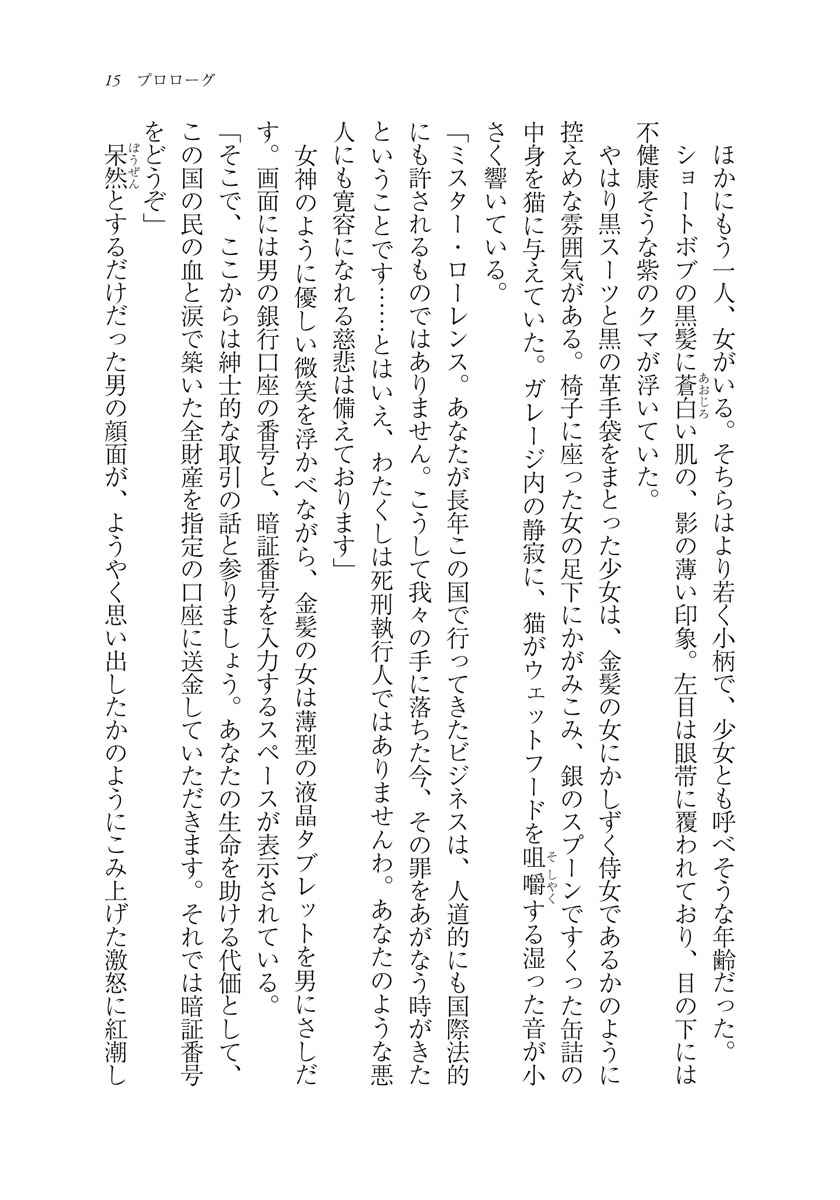 15　プロローグ
ほかにもう一人、女がいる。そちらはより若く小柄で、少女とも呼べそうな年齢だった。
ショートボブの黒髪に蒼白い肌の、影の薄い印象。左目は眼帯に覆われており、目の下には
不健康そうな紫のクマが浮いていた。
やはり黒スーツと黒の革手袋をまとった少女は、金髪の女にかしずく侍女であるかのように
控えめな雰囲気がある。椅子に座った女の足下にかがみこみ、銀のスプーンですくった缶詰の
中身を猫に与えていた。ガレージ内の静寂に、猫がウェットフードを咀嚼する湿った音が小
さく響いている。
「ミスター・ローレンス。あなたが長年この国で行ってきたビジネスは、人道的にも国際法的
にも許されるものではありません。こうして我々の手に落ちた今、その罪をあがなう時がきた
ということです……とはいえ、わたくしは死刑執行人ではありませんわ。あなたのような悪
人にも寛容になれる慈悲は備えております」
女神のように優しい微笑を浮かべながら、金髪の女は薄型の液晶タブレットを男にさしだ
す。画面には男の銀行口座の番号と、暗証番号を入力するスペースが表示されている。
「そこで、ここからは紳士的な取引の話と参りましょう。あなたの生命を助ける代価として、
この国の民の血と涙で築いた全財産を指定の口座に送金していただきます。それでは暗証番号
をどうぞ」
呆然とするだけだった男の顔面が、ようやく思い出したかのようにこみ上げた激怒に紅潮し